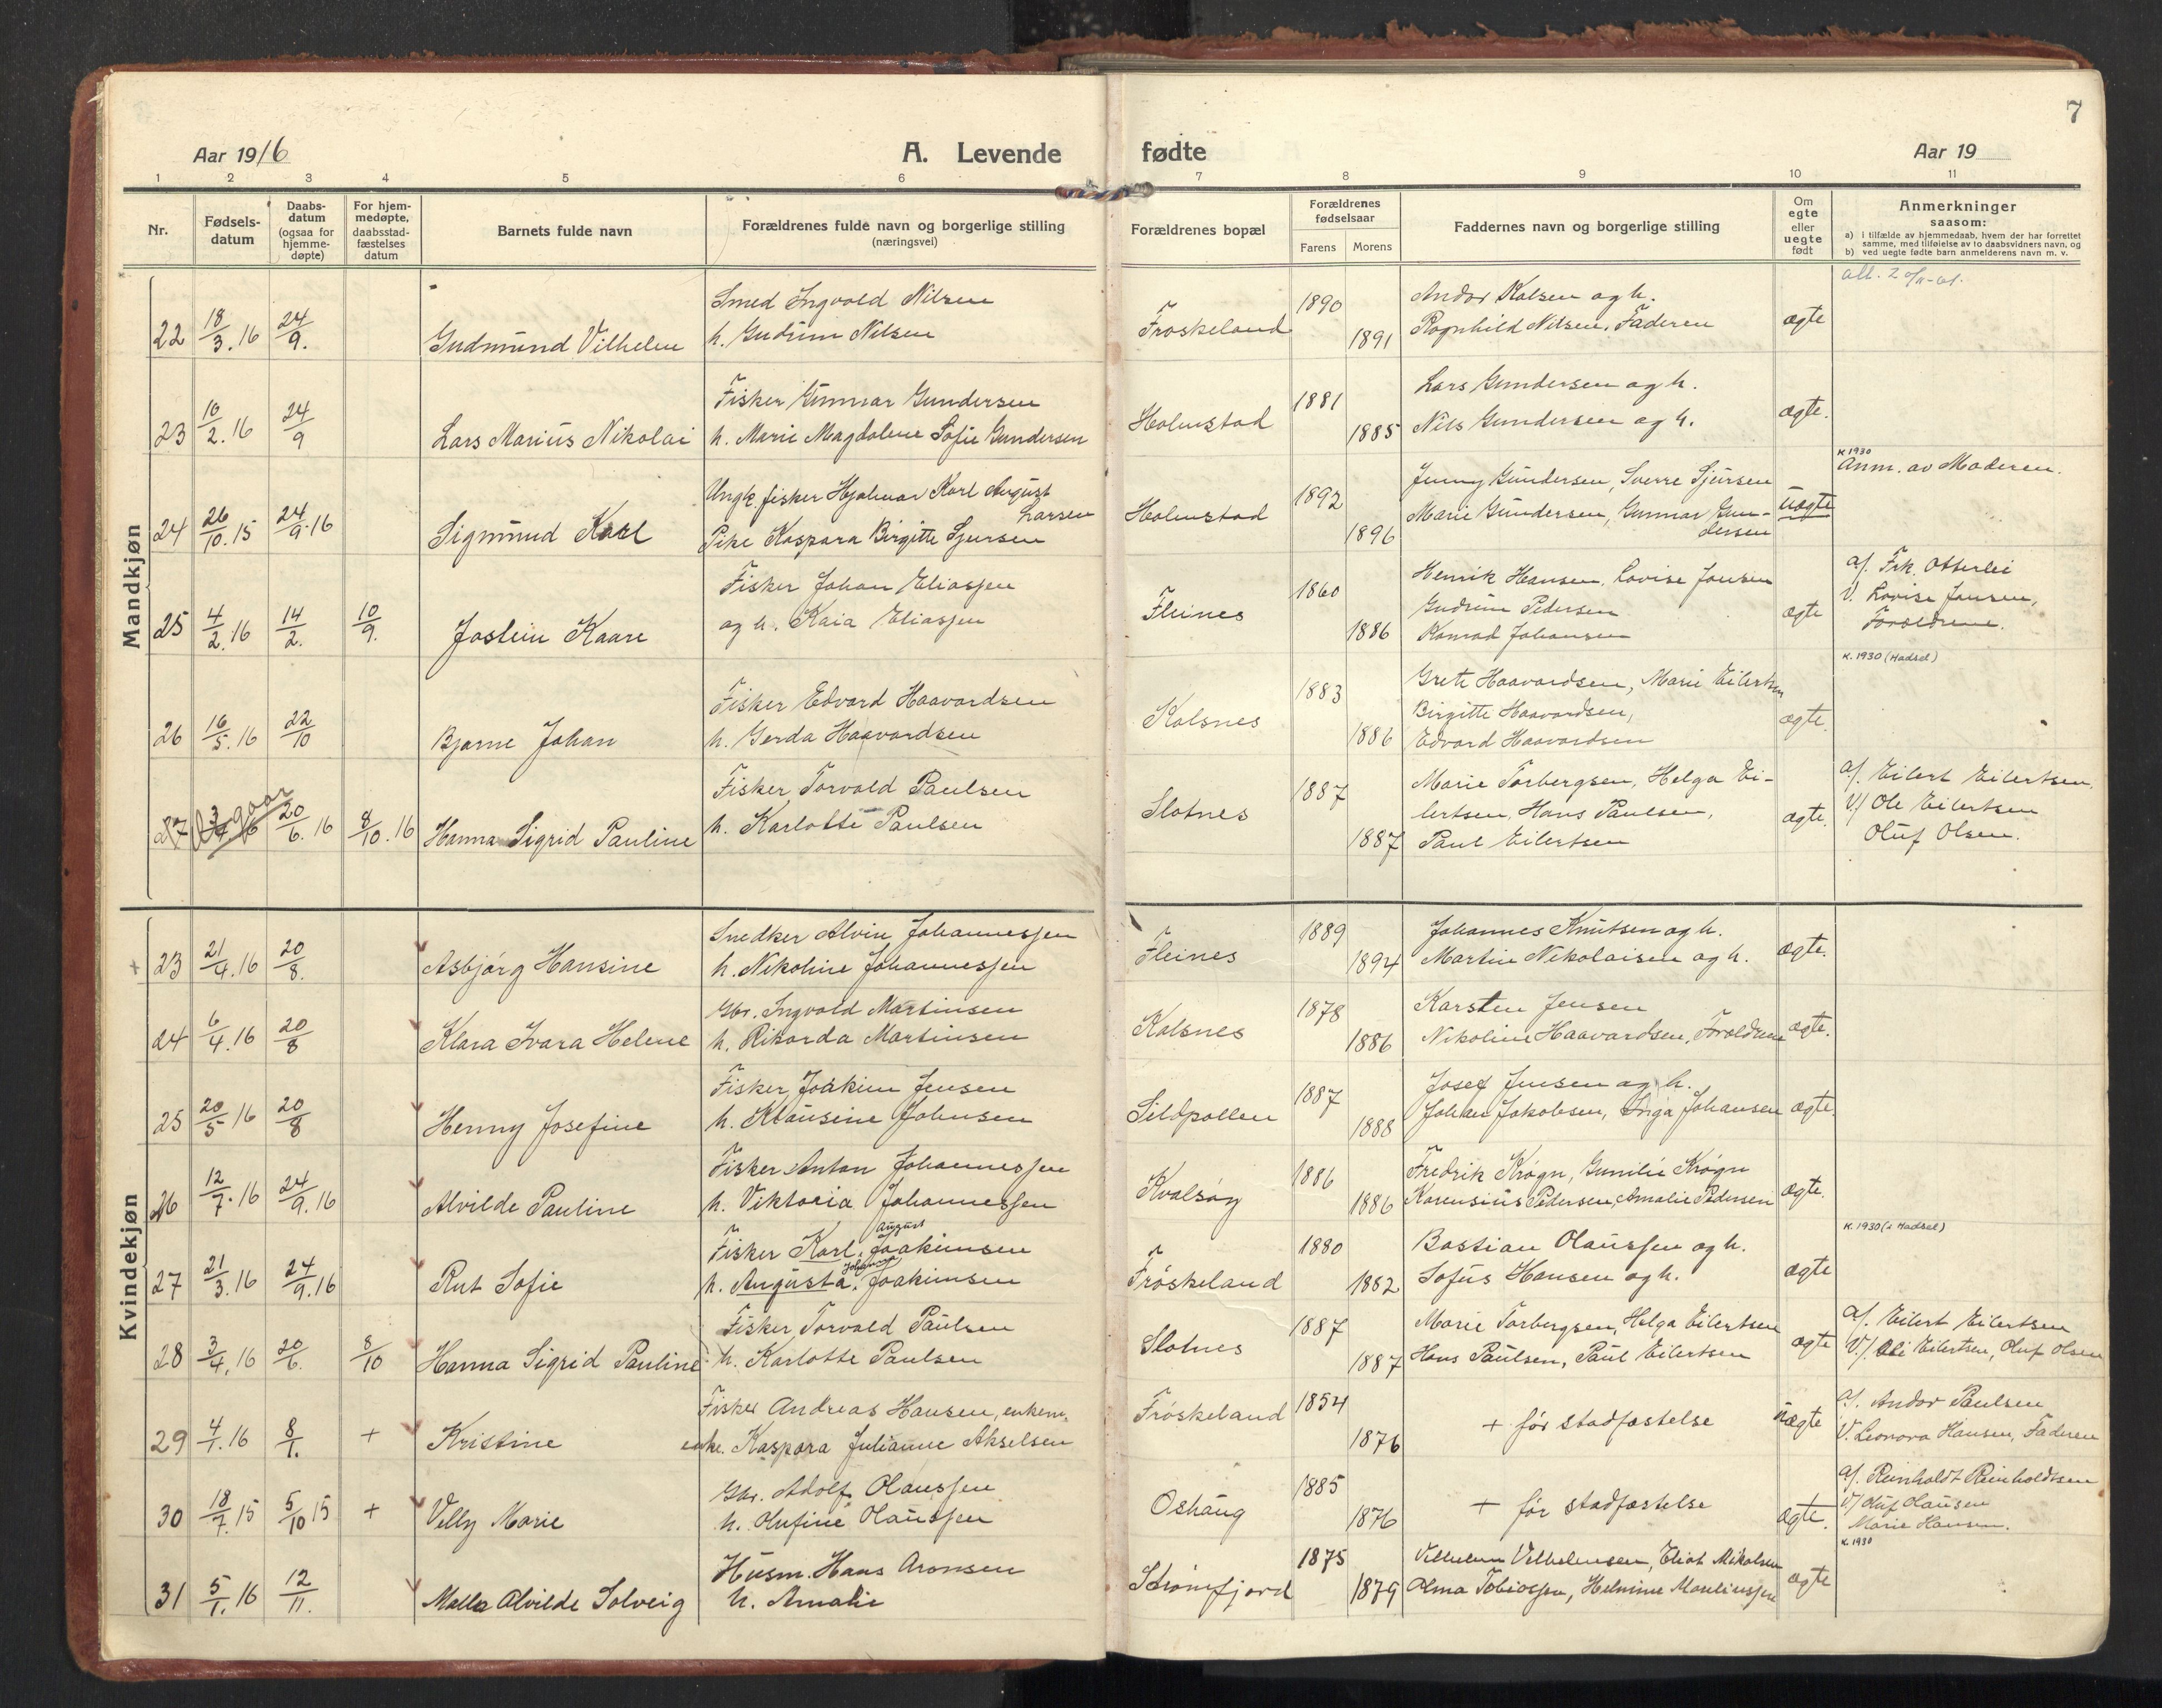 7
Aar 1916
A. Levende fødte
Aar 19
1 2 3 4 5 6 7 8 9 10 11
Nr.
Fødsels-
datum
Daabs-
datum
(ogsaa for
hjemme-
døpte)
For hjem-
medøpte,
daabsstad-
fæstelses
datum
Barnets fulde navn
Forældrenes fulde navn og borgerlige stilling
(næringsvei)
Forældrenes bopæl
Forældrenes
fødselsaar
Farens Morens
Faddernes navn og borgerlige stilling
Om
egte
eller
uegte
født
Anmerkninger
saasom:
a) i tilfælde av hjemmedaab, hvem der har forrettet
samme, med tilføielse av to daabsvidners navn, og
b) ved uegte fødte barn anmelderens navn m. v.
Mandkjøn
Smed Ingvald Nilsen Froskeland 1890 Andor Kolsen og h.
22 18/3.16 24/9. Gudmund Vilhelm h. Gudrun Nilsen 1891 Ragnhild Nilsen, Faderen ægte
Fisker Gunnar Gundersen Holmstad 1881 Lars Gundersen og h.
23 16/2.16 24/9 Lars Marius Nikolai h. Marie Magdalene Sofie Gundersen 1885 Nils Gundersen og h. ægte.
K 1930
Ungk. fisker Hjalmar Karl August Larsen Holmstad 1892 Jenny Gundersen, Sverre Sjursen uægte Anm. av Moderen.
24 26/10.15 24/9.16 Sigmund Karl Pike Kaspara Birgitte Sjursen 1896 Marie Gundersen, Gunnar Gun-
dersen
Fisker Johan Eliassen Fleines 1860 Henrik Hansen, Lovise Jansen a/. Frk. Otterlei
25 4/2.16 14/2. 10/9. Jostein Kaare og h. Kaia Eliassen 1886 Gudrun Pedersen ægte V. Lovise Jansen,
Konrad Johansen Forældrene.
K. 1930 (Hadsel)
Fisker Edvard Haavardsen Kalsnes 1883 Grete Haavardsen, Marie Eilertsen
26 16/5.16 22/10 Bjarne Johan h. Gerda Haavardsen 1886 Birgitte Haavardsen, ægte.
Edvard Haavardsen
Fisker Torvald Paulsen Slotnes 1887 Marie Torbergsen, Helga Ei- a/. Eilert Eilertsen,
27 3/4 16 20/6.16 8/10.16 Hanna Sigrid Pauline h. Karlotte Paulsen lertsen, Hans Paulsen, ægte. V/ Ole Eilertsen
1887 Paul Eilertsen Oluf Olsen.
Kvindekjøn
Snedker Alvin Johannessen Fleines 1889 Johannes Knutsen og h.
+ 23 21/4.16 20/8. Asbjørg Hansine h. Nikoline Johannessen 1894 Martin Nikolaisen og h. ægte.
Gbr. Ingvald Martinsen Kalsnes 1878 Karsten Jensen
24 6/4.16 20/8 Klara Ivara Helene h. Rikarda Martinsen 1886 Nikoline Haavardsen, Forældrene ægte.
Fisker Joakim Jensen Sildpollen 1887 Josef Jensen og h.
25 20/5 16 20/8 Henny Josefine h. Klausine Johnsen 1888 Johan Jakobsen, Inga Johansen ægte.
Fisker Anton Johannessen Kvalsøy 1886 Fredrik Krøgn, Gunilie Krøgn
26 12/7.16 24/9.16 Alvilde Pauline h. Viktoria Johannessen 1886 Karensius Pedersen, Amalie Pedersen ægte.
K. 1930 (i Hadsel)
August
Fisker Karl Joakimsen Frøskeland 1880 Bastian Olaussen og h.
27 21/3.16 24/9.16 Rut Sofie h. Augusta Joakimsen 1882 Sofus Hansen og h. ægte
Fisker Torvald Paulsen Slotnes 1887 Marie Torbergsen, Helga Eilertsen a/. Eilert Eilertsen
28 3/4.16 20/6. 8/10 Hanna Sigrid Pauline h. Karlotte Paulsen 1887 Hans Paulsen, Paul Eilertsen ægte V./ Ole Eilertsen, Oluf Olsen
Fisker Andreas Hansen, enkem. Frøskeland 1854 + før stadfæstelse uægte a/. Andor Paulsen
29 4/1.16 8/1. + Kristine enke. Kaspara Julianne Akselsen 1876 V. Leonora Hansen, Faderen
Gbr. Adolf Olaussen Oshaug 1885 + før stadfæstelse a/. Reinholdt Reinholdtsen
30 18/7.15 5/10 15 + Velly Marie h. Olufine Olaussen 1876 ægte. V/ Oluf Hansen
Marie Hansen.
K. 1930
Husm. Hans Aronsen Strømfjord 1875 Vilhelm Vilhelmsen, Eliot Mikalsen
31 5/1.16 12/11. Malla Alvilde Solveig h. Amalie 1879 Olma Tobiassen, Helmine Mareliussen ægte